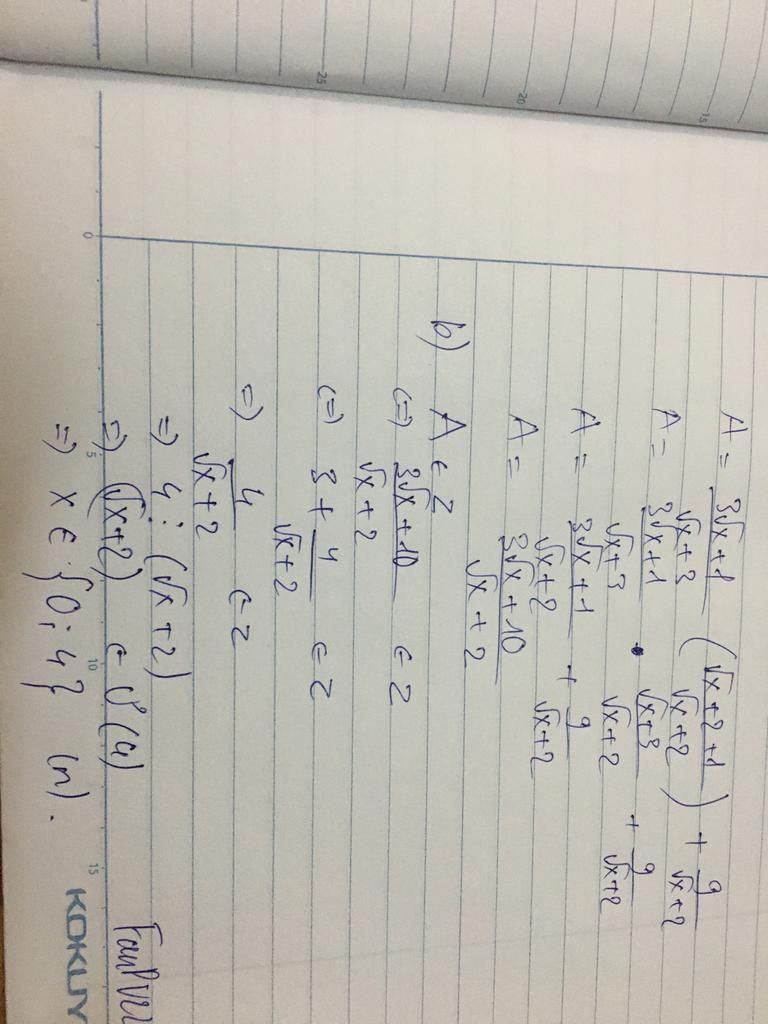 A = (3√x+1)/(√x+3) ((√x+2+1)/(√x+2)) + 9/(√x+2)
A = (3√x+1)/(√x+3) • (√x+3)/(√x+2) + 9/(√x+2)
A = (3√x+1)/(√x+2) + 9/(√x+2)
A = (3√x+10)/(√x+2)
b) A ∈ Z
(=) (3√x+10)/(√x+2) ∈ Z
(=) 3 + 4/(√x+2) ∈ Z
=) 4/(√x+2) ∈ Z
=) 4 ⋮ (√x+2)
=) (√x+2) ∈ Ư(4)
=) x ∈ {0; 4} (n).
KOKUY
0
5
10
15
15
20
25